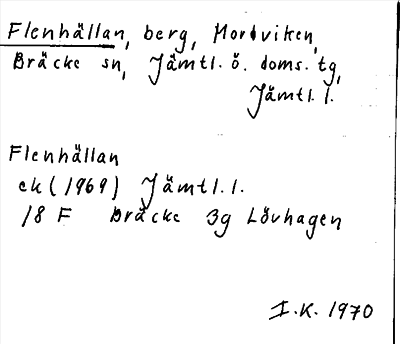 Flenhällan, berg, Mordviken,
Bräcke sn, Jämtl. ö. doms. tg,
Jämtl. l.
Flenhällan
ek (1969) Jämtl. l.
18 F Bräcke 3g Lövhagen
I.K. 1970